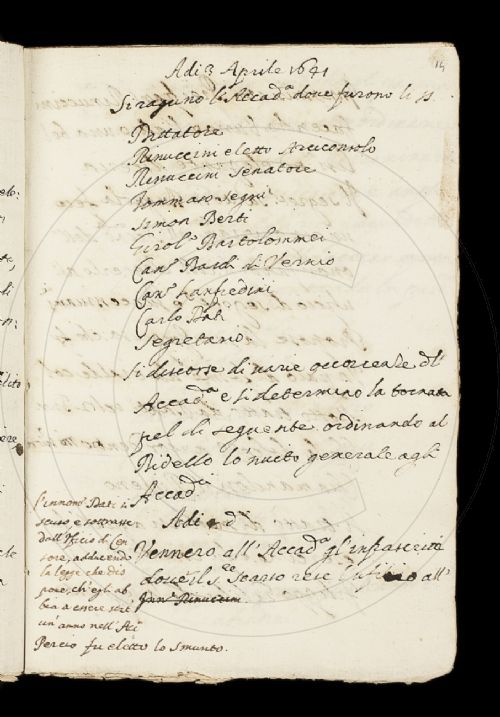 14
Adi 3 Aprile 1641
Si ragunò l'Accad.ª dove furono li ss.
Dittatore
Rinuccini eletto Arciconsolo
Rinuccini Senatore
Tommaso Segni
Simon Berti
Girol.º Bartolommei
Can.co Bardi di Vernio
Can.co Lanfredini
Carlo Dati
Segretario
Si discorse di varie occorrenze dell'
Accad.ª e si determinò la tornata
pel dì seguente ordinando al
Bidello lo'nvito generale agli
Accad.ci
Adi d.º
Vennero all'Accad.ª gl'infrascritti
dove il S.re
all'
Rinuccini
Dati si
scusò, e sottrasse
dall'Uficio di Cen
sore, adducendo
la legge che dis
pone, ch'egli ab
bia a essere stato
un'anno nell'
Perciò fu eletto lo Smunto.